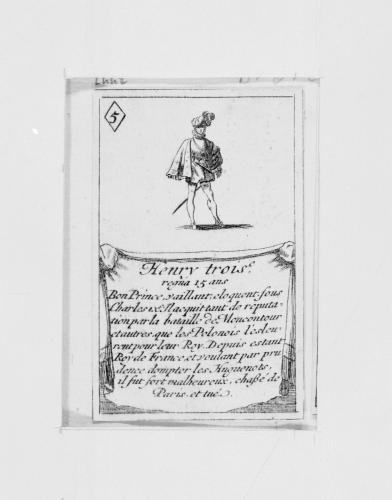 5
Henry trois.e
regna 15 ans
Bon Prince, vaillant, eloquent, sous
Charles ix.e Il acquit tant de reputa-
tion par la bataille de Moncontour
et autres, que les Polonois l'esleu-
rent pour leur Roy. Depuis estant
Roy de France, et voulant par pru
dence dompter les Huguenots,
il fut fort malheureux, chassé de
Paris, et tué.